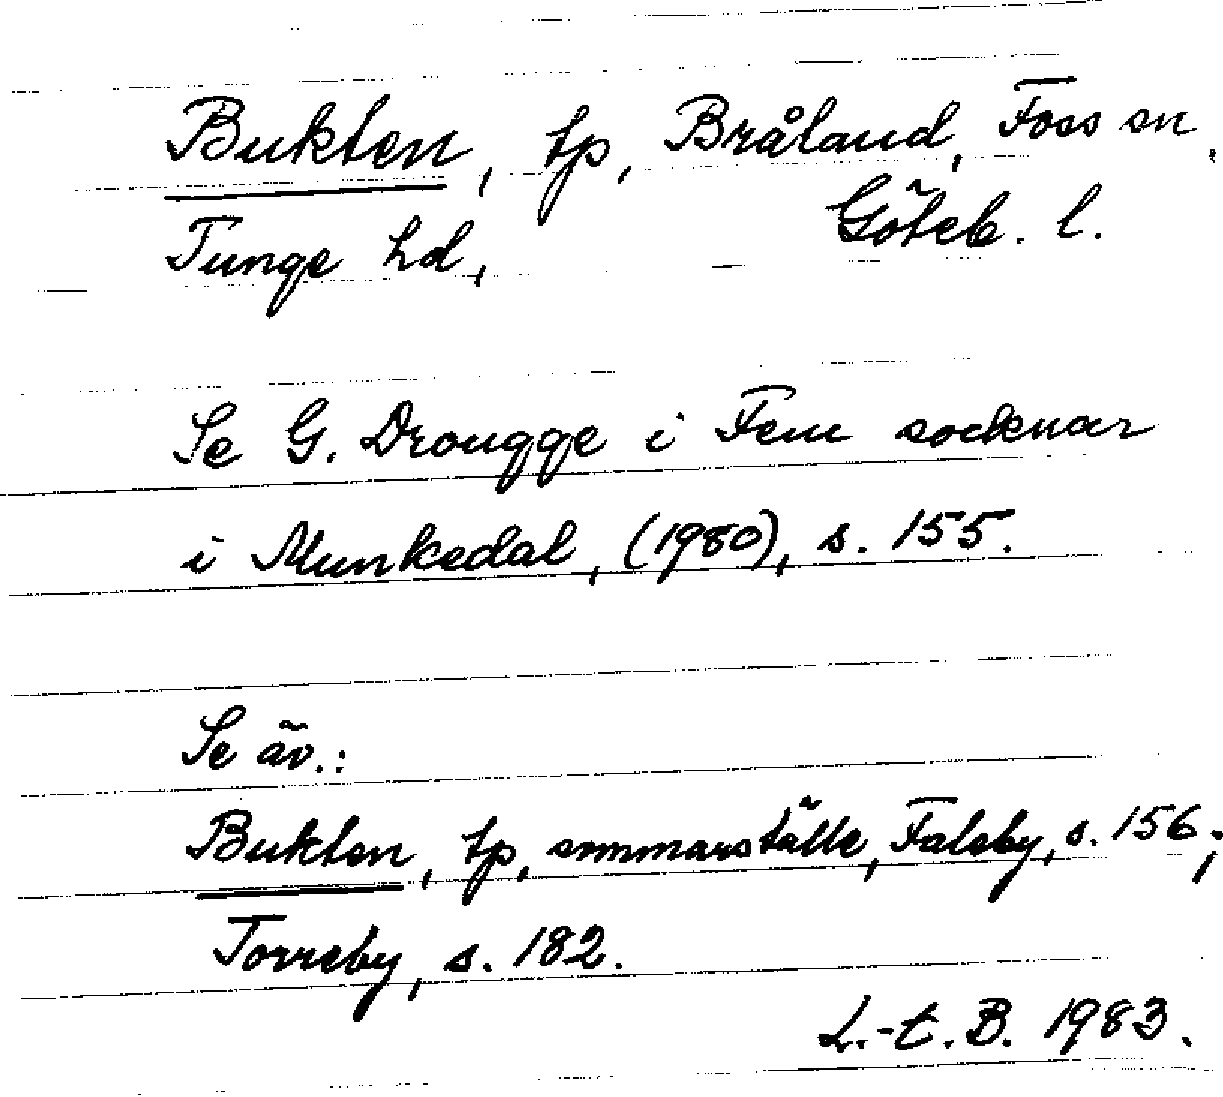 Bukten, tp, Bråland, Foss sn,
Tunge hd, Göteb. l.
Se G. Drougge i Fem socknar
i Munkedal, (1980), s. 155.
Se äv.:
Bukten, tp, sommarställe, Faleby, s. 156;
Torreby, s. 182.
L.-t. B. 1983.